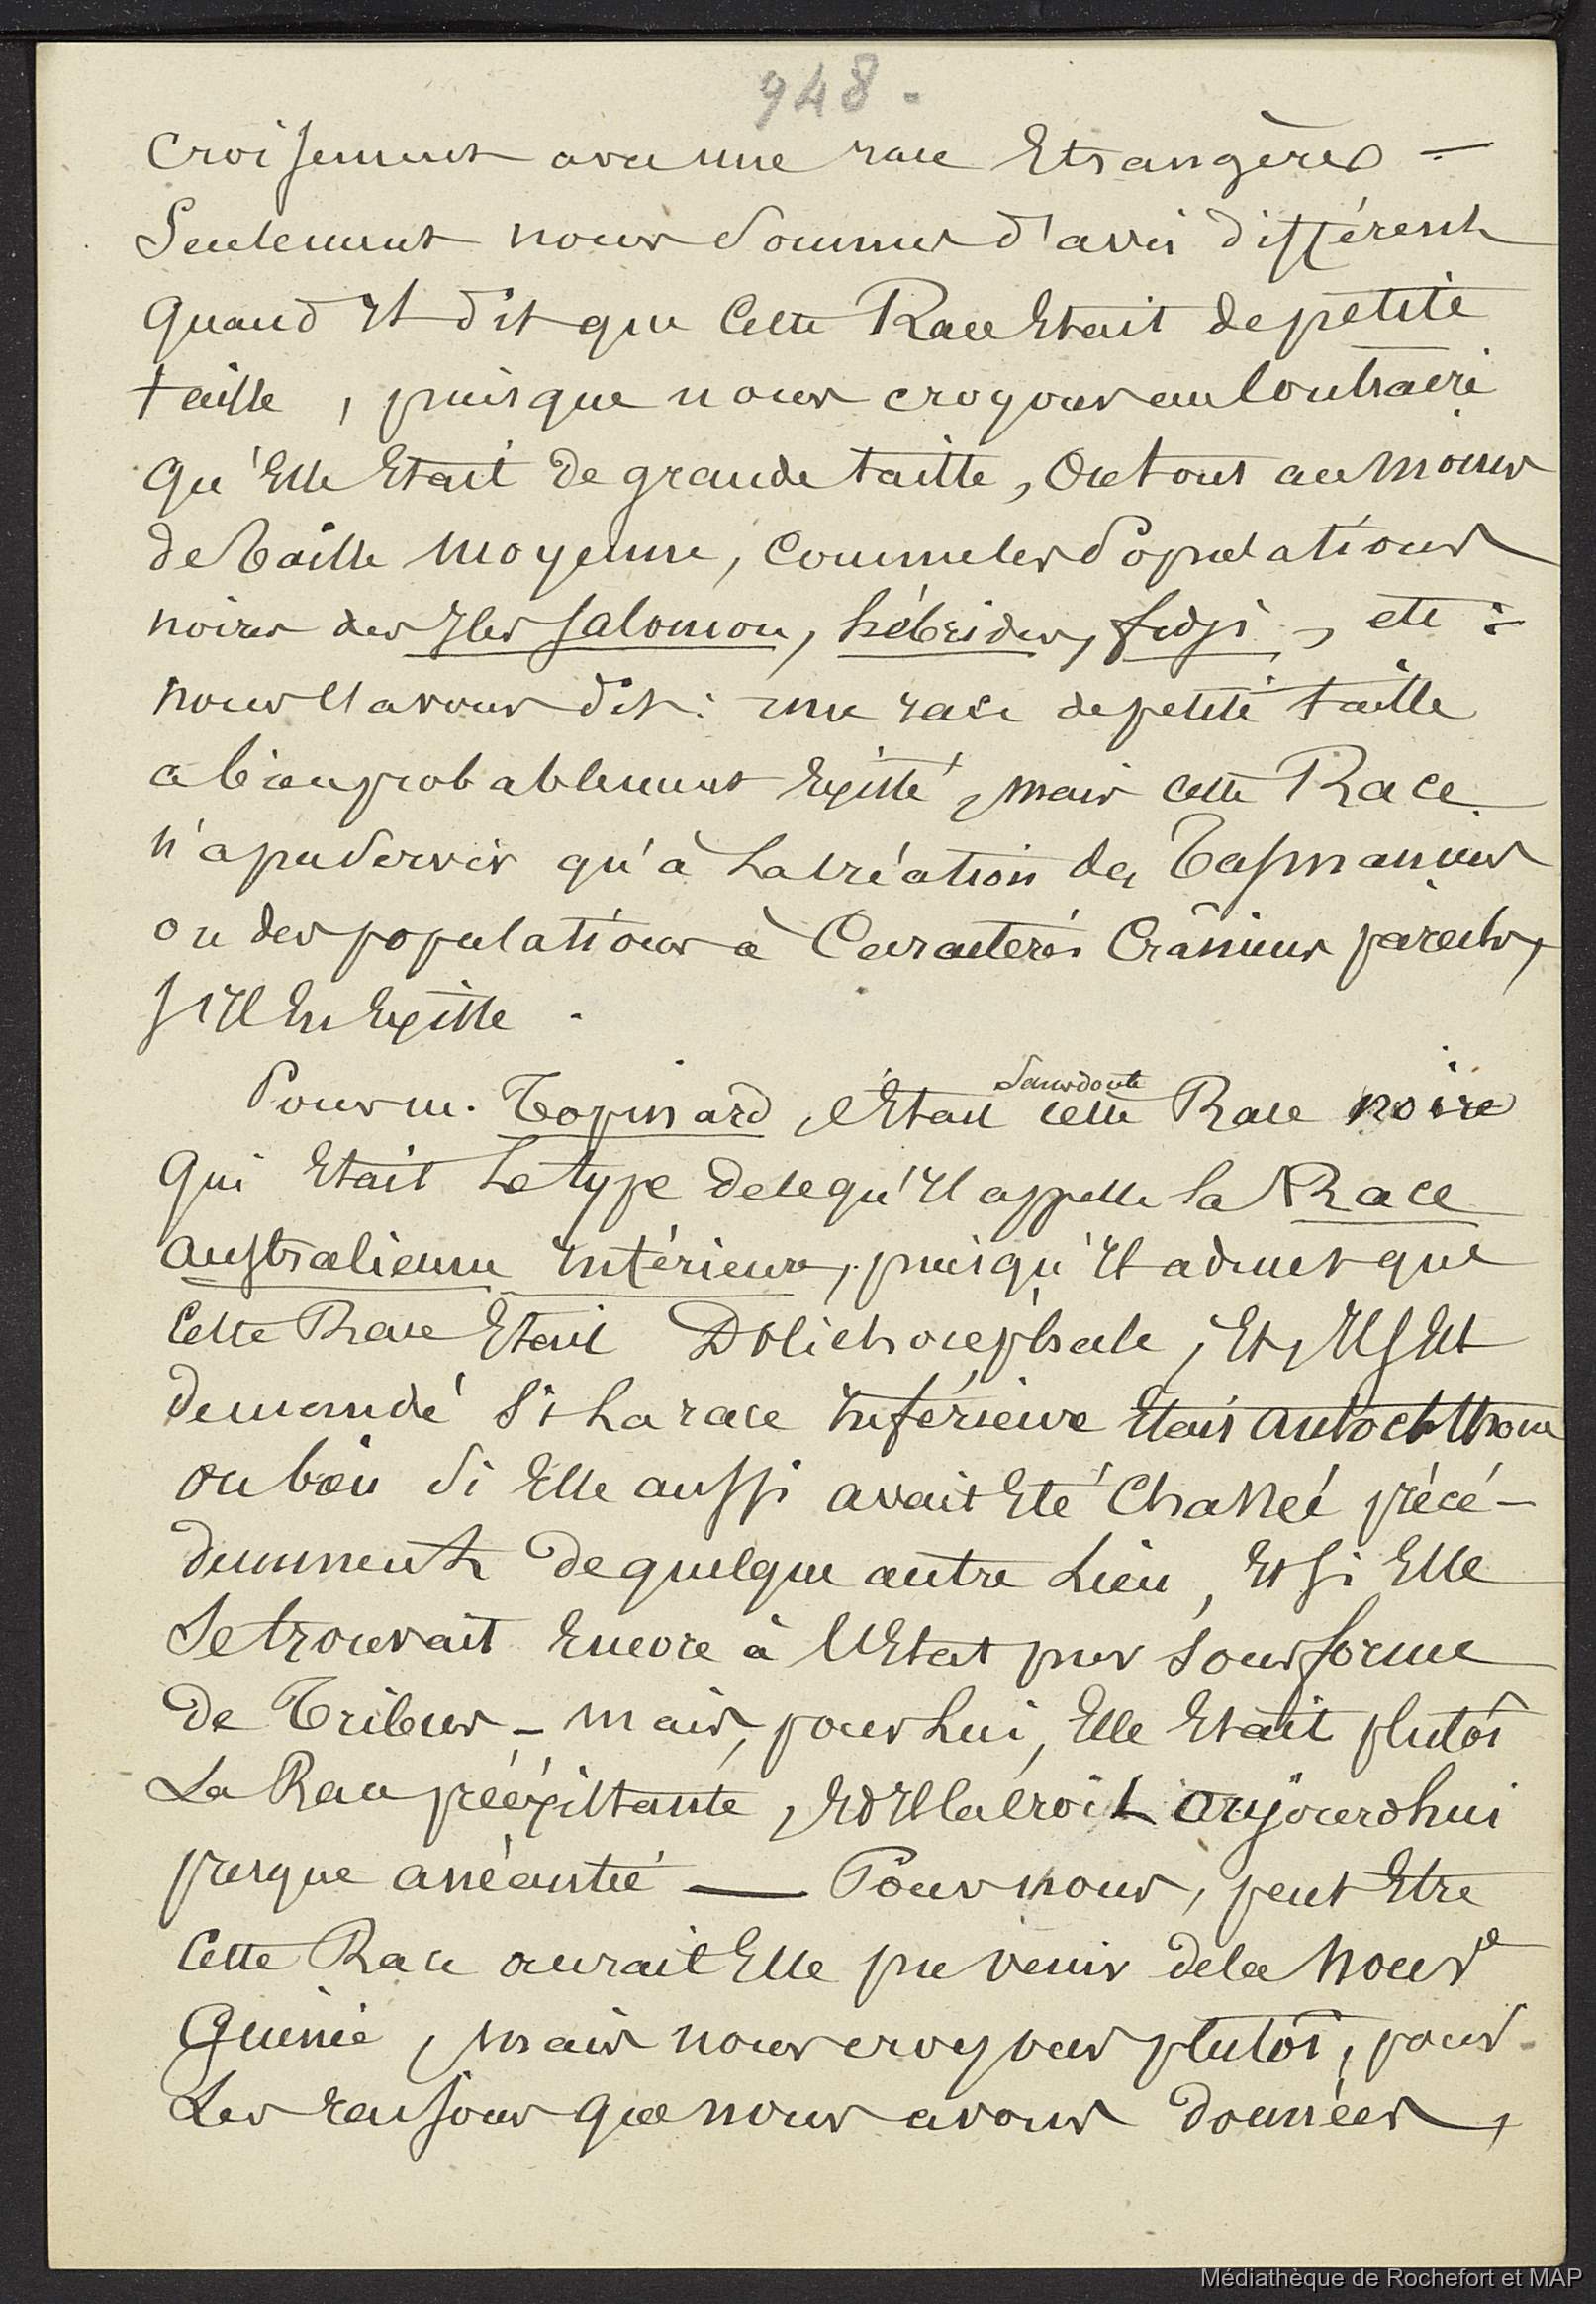 948.
Croisement avec une race Etrangère —
Seulement nous sommes d'avis différent
quand Il dit que cette Race Etait de petite
taille, puisque nous croyons au contraire
qu'Elle Etait de grande taille, ou tout au moins
de taille moyenne, comme les Populations
noires des Iles Salomon, hébrides, fidji, etc :
nous l'avons dit : une race de petite taille
a bien probablement Existé, mais cette Race
n'a pu servir qu'à la création des Tasmaniens
ou des populations à Caractères Crâniens pareils,
s'Il En Existe.
Pour m. Topinard, c'Etait sans doute cette Race noire
qui Etait le type de ce qu'Il appelle la Race
australienne inférieure, puisqu'Il admet que
cette Race Etait Dolichocéphale, Et, Il s'Est
demandé si la race Inférieure Etait autochthone
ou bien si Elle aussi avait Eté Chassée précé-
demment de quelque autre lieu, Et si Elle
se trouvait Encore à l'Etat pur sous forme
de Tribus — mais, pour lui, Elle Etait plutôt
La Race préexistante, Et Il la croit aujourdhui
presque anéantie — Pour nous, peut Etre
cette Race aurait Elle pu venir de la Nouv.e
Guinée, mais nous croyons plutôt, pour
Les raisons que nous avons données,
Médiathèque de Rochefort et MAP